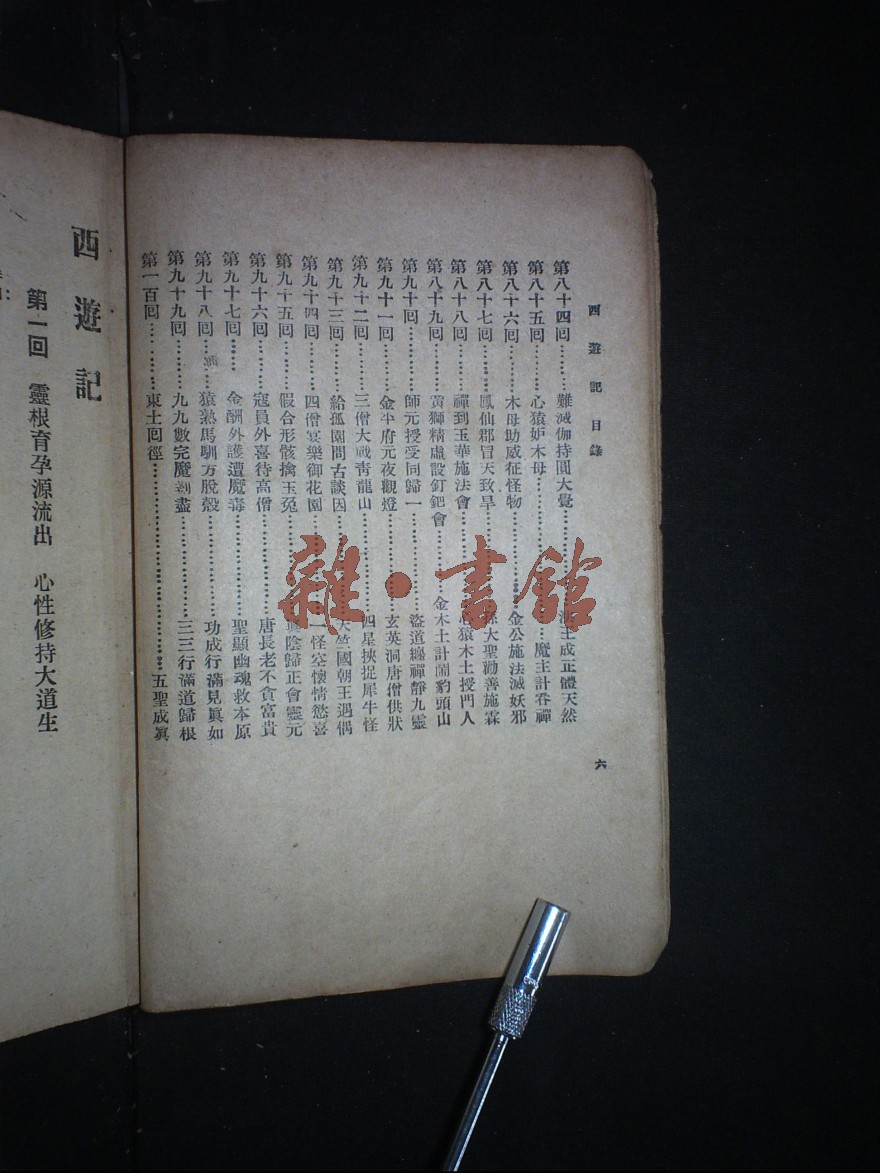 西遊記目錄
第八十四回………難滅伽持圓大覺………王成正體天然
第八十五回………心猿妒木母………魔主計吞禪
第八十六回………木母助威征怪物………金公施法滅妖邪
第八十七回………鳳仙郡冒天致旱………孫大聖勸善施霖
第八十八回………禪到玉華施法會………心猿木土授門人
第八十九回………黃獅精虛設釘鈀會………金木土計鬧豹頭山
第九十回………師元授受同歸一………盜道纏禪靜九靈
第九十一回………金平府元夜觀燈………玄英洞唐僧供狀
第九十二回………三僧大戰靑龍山………四星挾捉犀牛怪
第九十三回………給孤園問古談因………天竺國朝王遇偶
第九十四回………四僧宴樂御花園………一怪空懷情慾喜
第九十五回………假合形骸擒玉兔………眞陰歸正會靈元
第九十六回………寇員外喜待高僧………唐長老不貪富貴
第九十七回………金酬外護遭魔毒………聖顯幽魂救本原
第九十八回………猿熟馬馴方脫殼………功成行滿見眞如
第九十九回………九九數完魔剗盡………三三行滿道歸根
第一百回………東土回徑………五聖成眞
六
西遊記
第一回 靈根育孕源流出 心性修持大道生
雜·書館